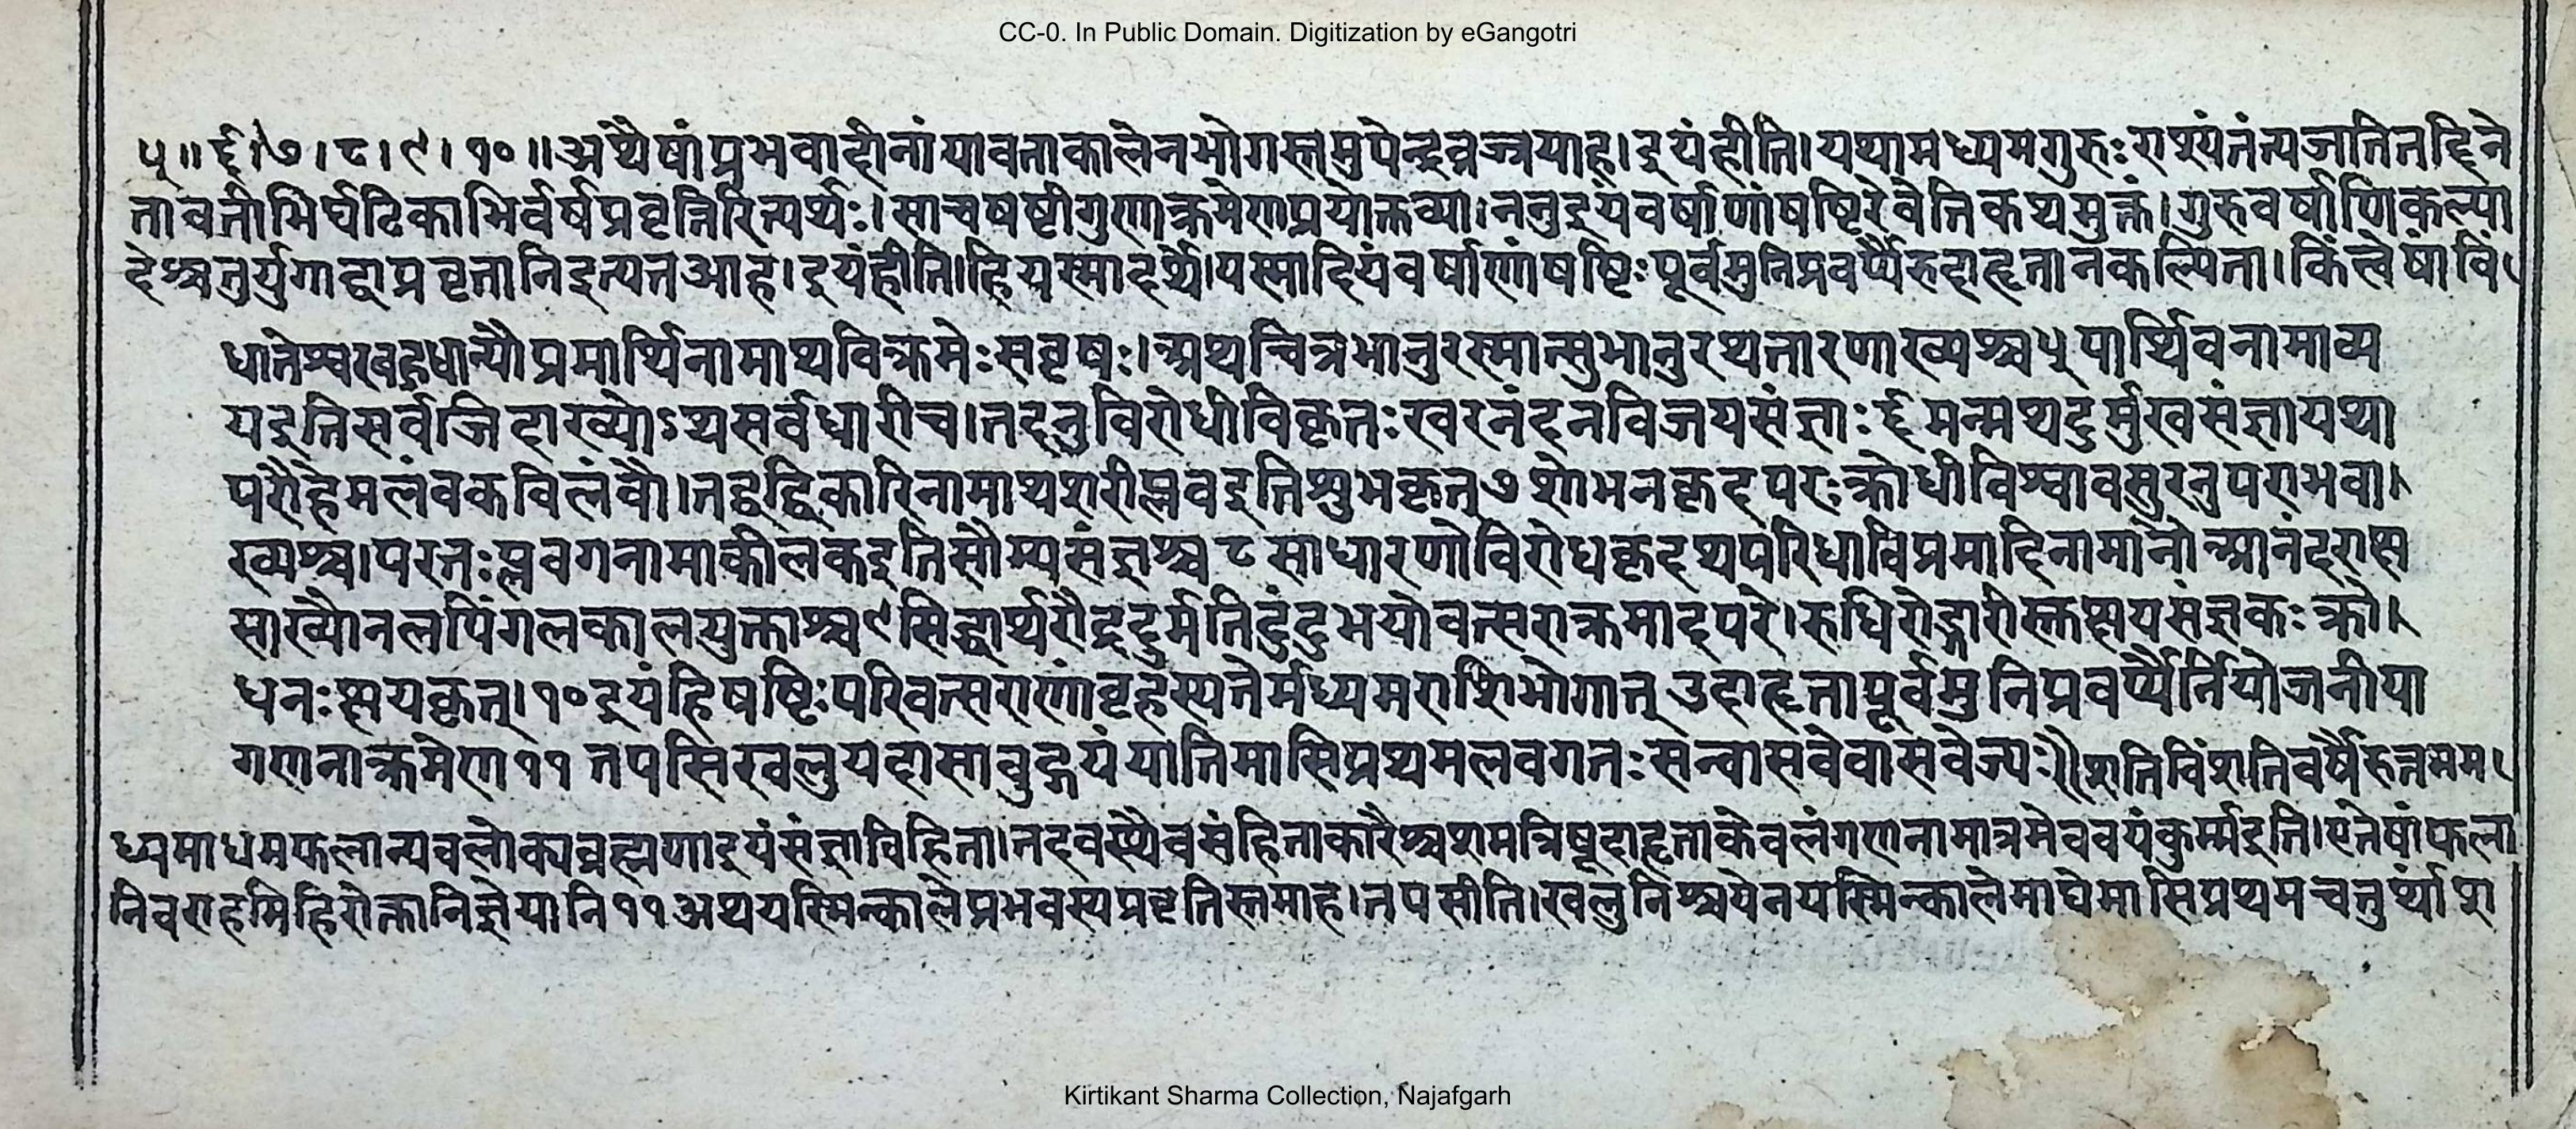 CC-0. In Public Domain. Digitization by eGangotri
५॥६।७।८।९।१०॥अथैषांप्रभवादीनांयावताकालेनभोगस्तमुपेन्द्रवज्रयाह।इयंहीति।यथामध्यमगुरुःराश्यंतंत्यजतितद्दिने
तावतीभिर्घटिकाभिर्वर्षप्रवृत्तिरित्यर्थः।साचषष्टीगुणाक्रमेणप्रयोक्तव्या।ननुइयंवर्षाणांषष्टिरेवेतिकथमुक्तं।गुरुवर्षाणिकल्पा
देश्चतुर्युगाद्वाप्रवृत्तानिइत्यतआह।इयंहीति।हियस्मादर्थे।यस्मादियंवर्षाणांषष्टिःपूर्वमुनिप्रवर्य्यैरुदाहृतानकल्पिता।किंत्वेषांवि
धातेश्वरबहुधान्यौप्रमाथिनामाथविक्रमेःसवृषः।अथचित्रभानुरस्मात्सुभानुरथतारणाख्यश्च५पार्थिवनामाव्य
यइतिसर्वजिदाख्योऽथसर्वधारीच।तदनुविरोधीविकृतःखरनंदनविजयसंज्ञाः६मन्मथदुर्मुखसंज्ञायथा
परौहेमलंवकविलंवौ।तद्वद्विकारिनामाथशरीप्लवइतिशुभकृत्७शोभनकृदपरःक्रोधीविश्वावसुरनुपराभवा।
ख्यश्च।परतःप्लवगनामाकीलकइतिसौम्यसंज्ञश्च८साधारणोविरोधकृदथपरिधाविप्रमादिनामानोआनंदराक्ष
साख्यौनलपिंगलकालयुक्ताश्च९सिद्धार्थरौद्रदुर्मतिदुंदुभयोवत्सराक्रमादपरे।रुधिरोद्गारीरक्तक्षयसंज्ञकःक्रो।
धनःक्षयकृत्।१०इयंहिषष्टिःपरिवत्सराणांवृहस्पतेर्मध्यमराशिभोगात्उदाहृतापूर्वमुनिप्रवर्य्यैर्नियोजनीया
गणनाक्रमेण११तपसिखलुयदासावुद्गयंयातिमासिप्रथमलवगतःसन्वासवेवासवेज्यः॥शतिविंशतिवर्षैरुत्तमम
ध्यमाधमफलान्यवलोक्यव्रह्मणाइयंसंज्ञाविहिता।तदवस्थैवसंहिताकारैश्चशमत्रिषूदाहृताकेवलंगणनामात्रमेववयंकुर्म्मइति।एतेषांफला
निवराहमिहिरोक्तानिज्ञेयानि११अथयस्मिन्कालेप्रभवस्यप्रवृत्तिस्तमाह।तपसीति।खलुनिश्चयेनयस्मिन्कालेमाघेमासिप्रथमचतुर्थांश
Kirtikant Sharma Collection, Najafgarh